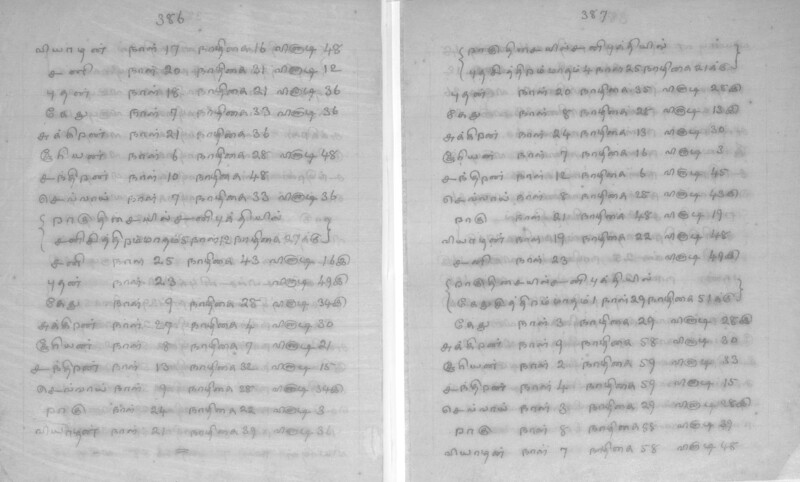 386
வியாழன் நாள் 17 நாழிகை 16 விநாடி 48
சனி நாள் 20 நாழிகை 31 விநாடி 12
புதன் நாள் 18 நாழிகை 21 விநாடி 36
கேது நாள் 7 நாழிகை 33 விநாடி 36
சுக்கிரன் நாள் 21 நாழிகை 36
சூரியன் நாள் 6 நாழிகை 28 விநாடி 48
சந்திரன் நாள் 10 நாழிகை 48
செவ்வாய் நாள் 7 நாழிகை 33 விநாடி 36
ராகு திசையில் சனி புத்தியில்
சனி சித்திரம் மாதம் 5 நாள் 12 நாழிகை 27
சனி நாள் 25 நாழிகை 43 விநாடி 16
புதன் நாள் 23 விநாடி 49
கேது நாள் 9 நாழிகை 28 விநாடி 34
சுக்கிரன் நாள் 27 நாழிகை 4 விநாடி 30
சூரியன் நாள் 8 நாழிகை 7 விநாடி 21
சந்திரன் நாள் 13 நாழிகை 32 விநாடி 15
செவ்வாய் நாள் 9 நாழிகை 28 விநாடி 34
ராகு நாள் 24 நாழிகை 22 விநாடி 3
வியாழன் நாள் 21 நாழிகை 39 விநாடி 36
387
ராகு திசையில் சனி புத்தியில்
புதன் மாதம் 4 நாள் 25 நாழிகை 21
புதன் நாள் 20 நாழிகை 35 விநாடி 25
கேது நாள் 8 நாழிகை 28 விநாடி 13
சுக்கிரன் நாள் 24 நாழிகை 13 விநாடி 30
சூரியன் நாள் 7 நாழிகை 16 விநாடி 3
சந்திரன் நாள் 12 நாழிகை 6 விநாடி 45
செவ்வாய் நாள் 8 நாழிகை 28 விநாடி 43
ராகு நாள் 21 நாழிகை 48 விநாடி 19
வியாழன் நாள் 19 நாழிகை 22 விநாடி 48
சனி நாள் 23 விநாடி 49
ராகு திசையில் சனி புத்தியில்
கேது சித்திரம் மாதம் 1 நாள் 29 நாழிகை 51
கேது நாள் 3 நாழிகை 29 விநாடி 28
சுக்கிரன் நாள் 9 நாழிகை 58 விநாடி 30
சூரியன் நாள் 2 நாழிகை 59 விநாடி 33
சந்திரன் நாள் 4 நாழிகை 59 விநாடி 15
செவ்வாய் நாள் 3 நாழிகை 29 விநாடி 28
ராகு நாள் 8 நாழிகை 58 விநாடி 39
வியாழன் நாள் 7 நாழிகை 58 விநாடி 45